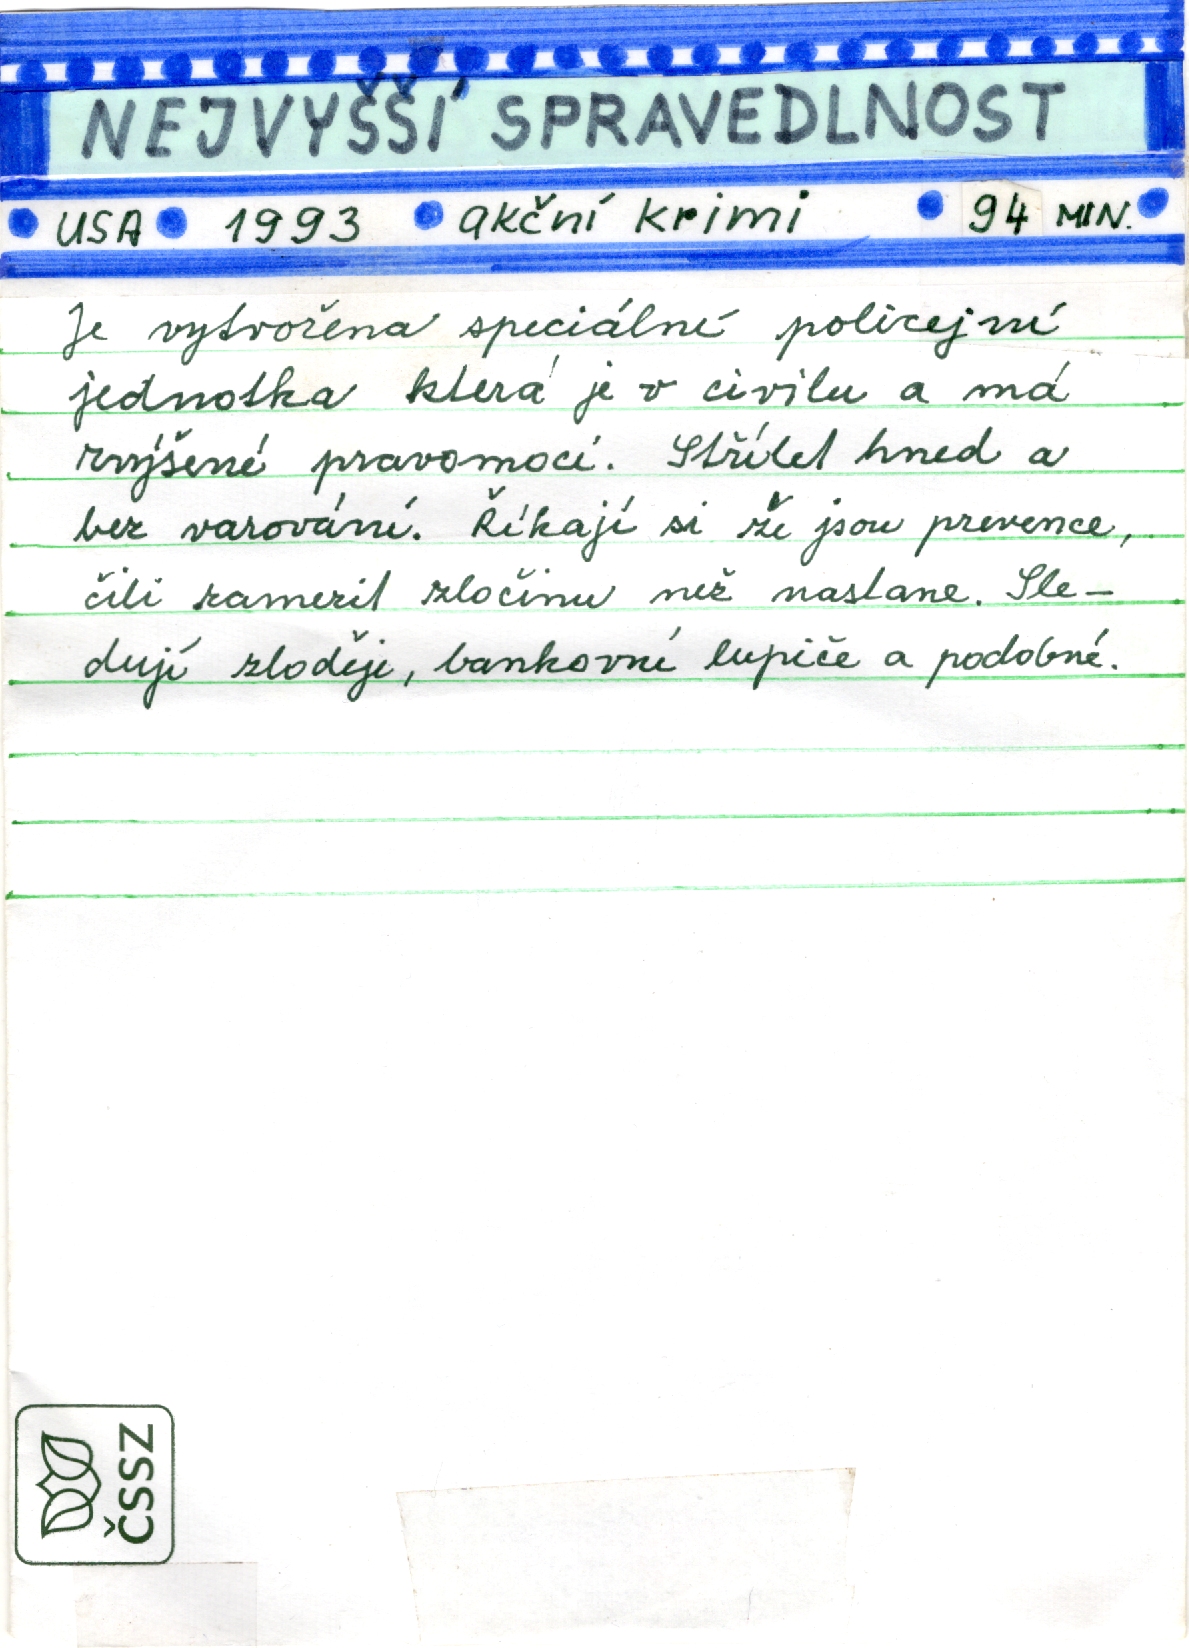 NEJVYŠŠÍ SPRAVEDLNOST
USA 1993 akční krimi 94 MIN.
Je vytvořena speciální policejní
jednotka která je v civilu a má
zvýšené pravomoci. Střílet hned a
bez varování. Říkají si že jsou prevence,
čili zamezit zločinu než nastane. Sle-
dují zloději, bankovní lupiče a podobné.
ČSSZ